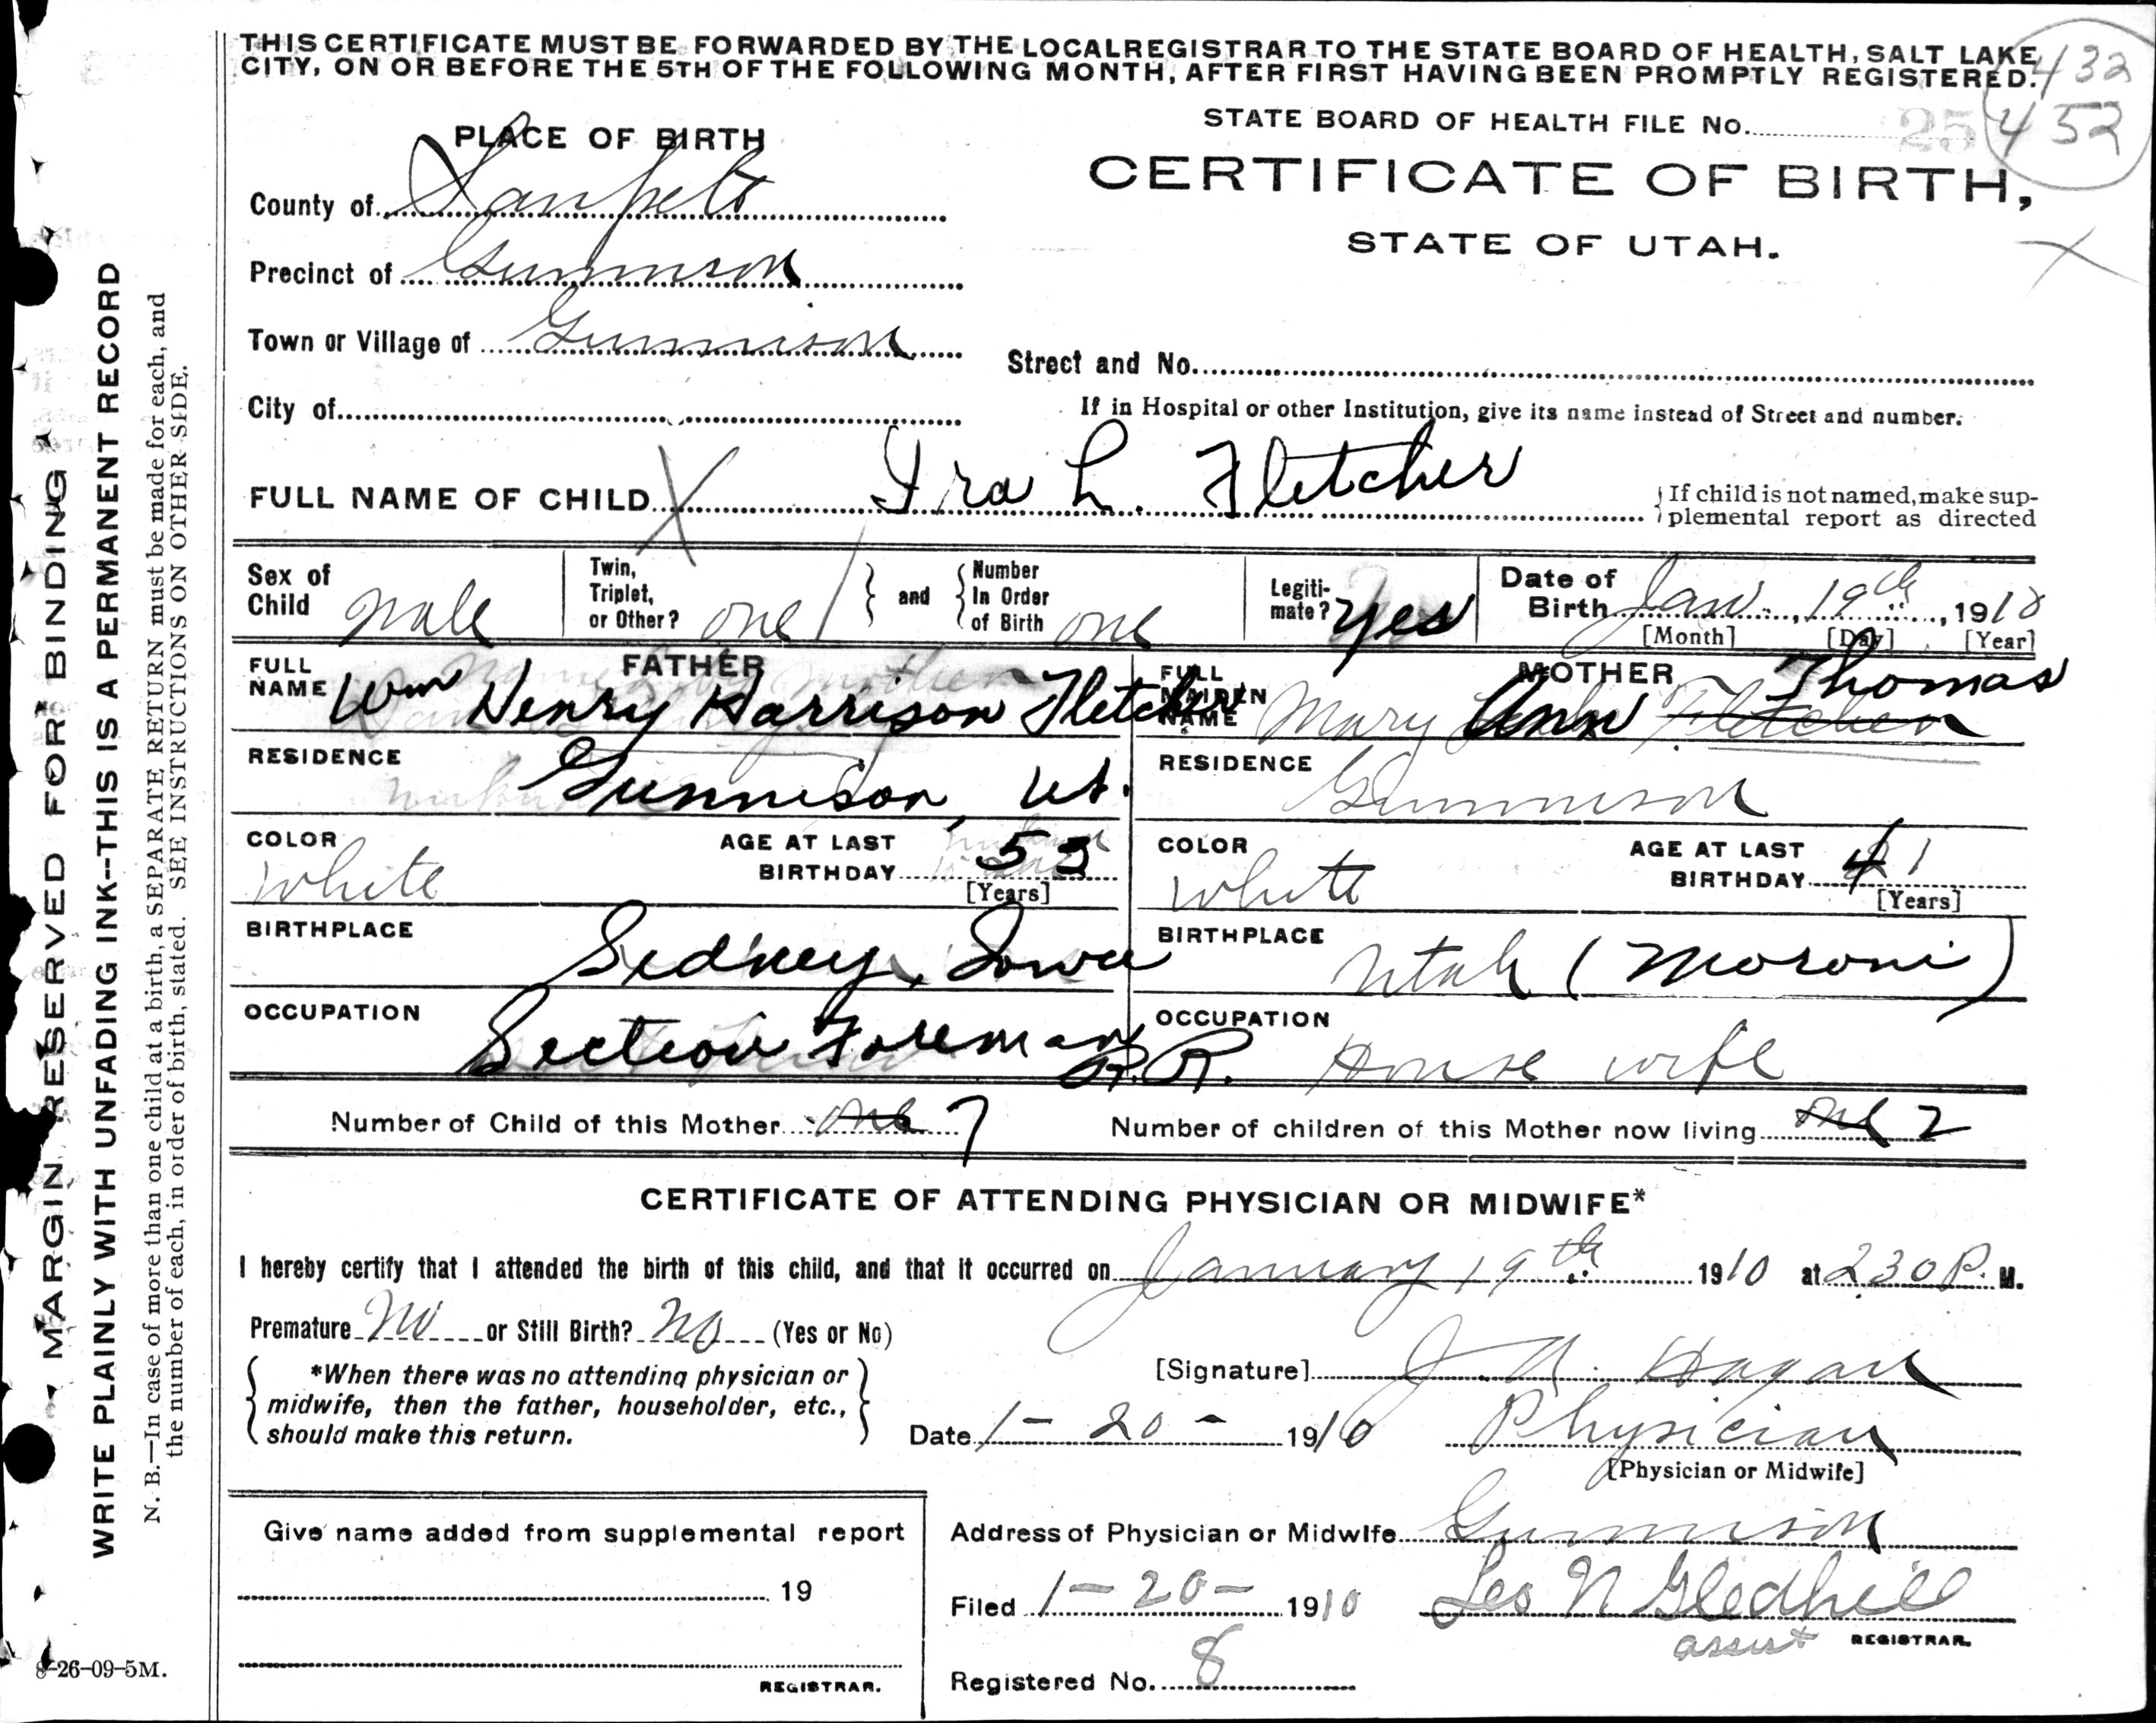 THIS CERTIFICATE MUST BE FORWARDED BY THE LOCAL REGISTRAR TO THE STATE BOARD OF HEALTH, SALT LAKE
CITY, ON OR BEFORE THE 5TH OF THE FOLLOWING MONTH, AFTER FIRST HAVING BEEN PROMPTLY REGISTERED.
432
452
25
PLACE OF BIRTH
STATE BOARD OF HEALTH FILE No.
CERTIFICATE OF BIRTH,
STATE OF UTAH.
County of Sanpete
Precinct of Gunnison
Town or Village of Gunnison
Street and No.
City of
If in Hospital or other Institution, give its name instead of Street and number.
FULL NAME OF CHILD X Ira L. Fletcher
{If child is not named, make sup-
plemental report as directed
Sex of Child Male
Twin, Triplet, or Other? one 1 } and { Number In Order of Birth one
Legiti-mate? Yes
Date of Birth Jan., 19th, 1910
[Month] [Day] [Year]
FATHER
FULL NAME Wm Henry Harrison Fletcher
RESIDENCE Gunnison, Ut.
COLOR White
AGE AT LAST BIRTHDAY 53
[Years]
BIRTHPLACE Sidney, Iowa
OCCUPATION Section Foreman R.R.
MOTHER
FULL MAIDEN NAME Mary Ann Fletcher Thomas
RESIDENCE Gunnison
COLOR White
AGE AT LAST BIRTHDAY 41
[Years]
BIRTHPLACE Utah (Moroni)
OCCUPATION House wife
Number of Child of this Mother one 7
Number of children of this Mother now living one 2
CERTIFICATE OF ATTENDING PHYSICIAN OR MIDWIFE*
I hereby certify that I attended the birth of this child, and that it occurred on January 19th 1910 at 230 P. M.
Premature No or Still Birth? No (Yes or No)
{ *When there was no attending physician or
midwife, then the father, householder, etc.,
should make this return. }
[Signature] J. A. Hagan
Date 1-20-1910 Physician
[Physician or Midwife]
Give name added from supplemental report
19
REGISTRAR.
Address of Physician or Midwife Gunnison
Filed 1-20-1910 Leo N Gledhill
assist REGISTRAR.
Registered No. 8
8-26-09-5M.
MARGIN RESERVED FOR BINDING
WRITE PLAINLY WITH UNFADING INK--THIS IS A PERMANENT RECORD
N. B.—In case of more than one child at a birth, a SEPARATE RETURN must be made for each, and
the number of each, in order of birth, stated. SEE INSTRUCTIONS ON OTHER SIDE.